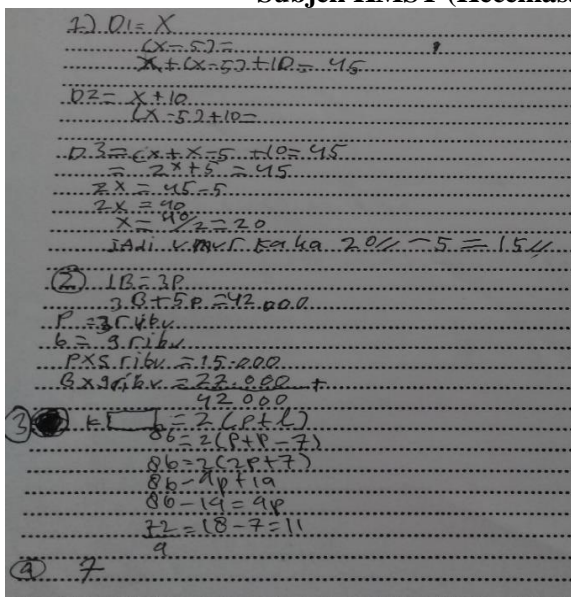 1) D1 = X
(x-5) =
x + (x-5) + 10 = 45
D2 = x + 10
(x-5) + 10 =
D3 = (x + x - 5 + 10 = 45
= 2x + 5 = 45
2x = 45 - 5
2x = 40
x = 40/2 = 20
JAdi umur kaka 20// - 5 = 15//
2 1B = 3P
3B + 5P = 42.000
P = 3 ribu
b = 9 ribu
P x 5 ribu = 15.000
B x 9 ribu = 27.000 +
42000
3 k = 2 (p + l)
86 = 2(p + p - 7)
86 = 2(2p + 7)
86 - 4p + 14
86 - 14 = 4p
72 = 18 - 7 = 11
4
4 7